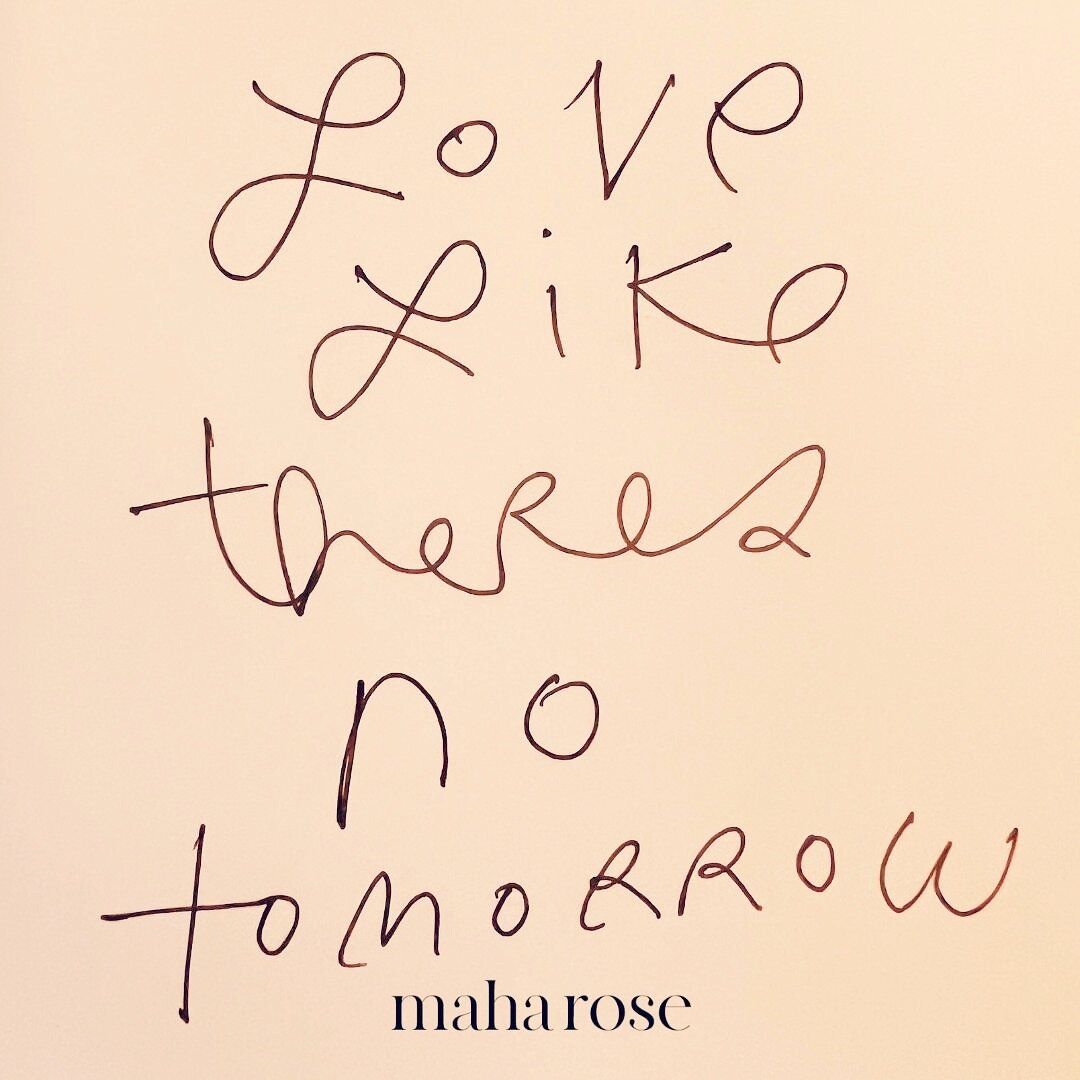 Love
Like
theRes
no
tomoRRow
maha rose